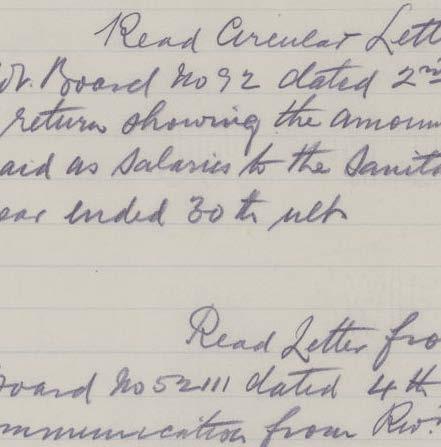 Read Circular Lett
Board No 92 dated 2nd
return showing the amoun
aid as Salaries to the Sanita
ear ended 30th ult
Read Letter fro
oard No 52111 dated 4th
ommunication from Revd